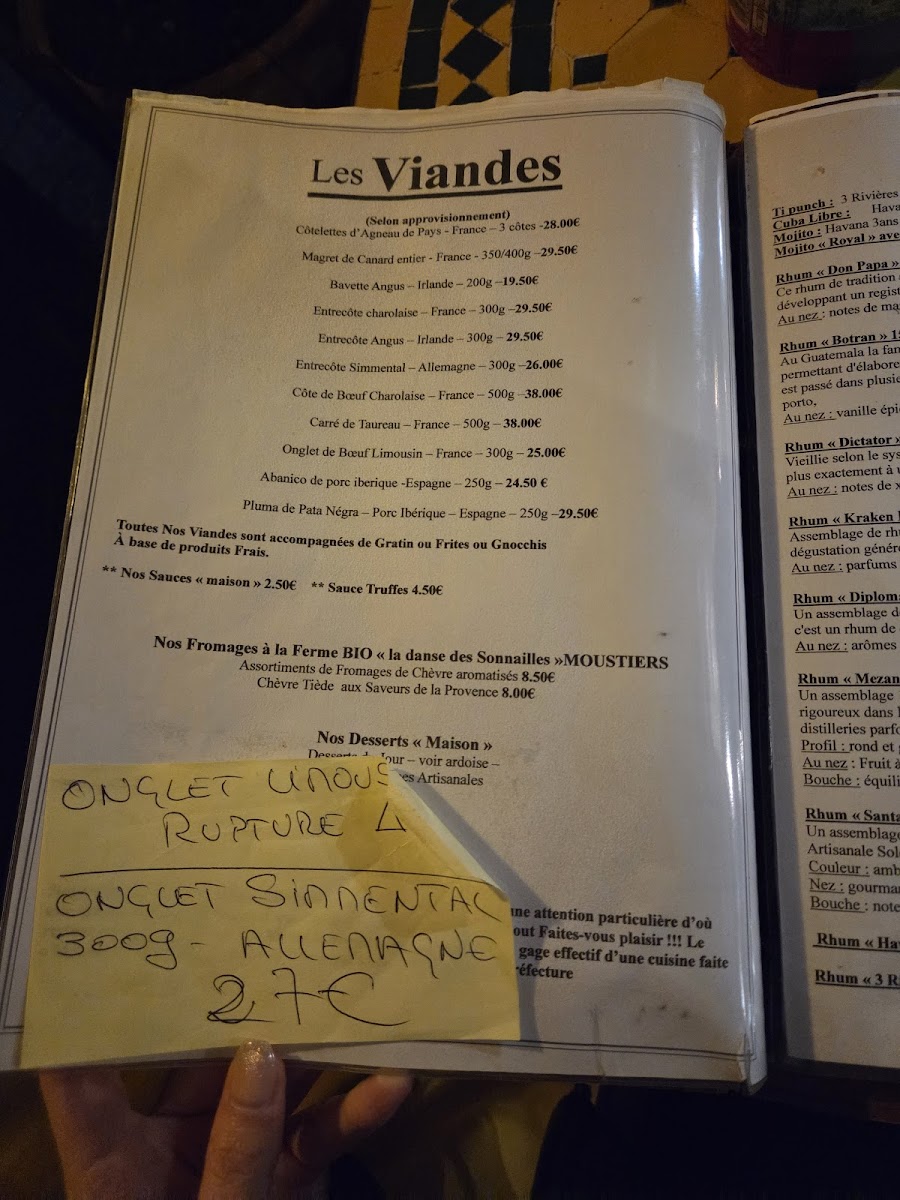 Les Viandes
(Selon approvisionnement)
Côtelettes d'Agneau de Pays - France – 3 côtes -28.00€
Magret de Canard entier - France - 350/400g –29.50€
Bavette Angus – Irlande – 200g –19.50€
Entrecôte charolaise – France – 300g –29.50€
Entrecôte Angus – Irlande – 300g – 29.50€
Entrecôte Simmental – Allemagne – 300g –26.00€
Côte de Bœuf Charolaise – France – 500g –38.00€
Carré de Taureau – France – 500g – 38.00€
Onglet de Bœuf Limousin – France – 300g – 25.00€
Abanico de porc iberique -Espagne – 250g – 24.50 €
Pluma de Pata Négra – Porc Ibérique – Espagne – 250g –29.50€
Toutes Nos Viandes sont accompagnées de Gratin ou Frites ou Gnocchis
À base de produits Frais.
** Nos Sauces « maison » 2.50€ ** Sauce Truffes 4.50€
Nos Fromages à la Ferme BIO « la danse des Sonnailles »MOUSTIERS
Assortiments de Fromages de Chèvre aromatisés 8.50€
Chèvre Tiède aux Saveurs de la Provence 8.00€
Nos Desserts « Maison »
Jour – voir ardoise –
Artisanales
attention particulière d'où
Faites-vous plaisir !!! Le
gage effectif d'une cuisine faite
ONGLET LIMOUS
RUPTURE
ONGLET SIMMENTAL
300g - ALLEMAGNE
27€
Ti punch : 3 Rivières
Cuba Libre : Hava
Mojito : Havana 3ans
Mojito « Royal » ave
Rhum « Don Papa »
Ce rhum de tradition
développant un regist
Au nez : notes de ma
Rhum « Botran »
Au Guatemala la fan
permettant d'élabore
est passé dans plusie
porto,
Au nez : vanille épi
Rhum « Dictator »
Vieillie selon le sys
plus exactement à
Au nez : notes de
Rhum « Kraken
Assemblage de rh
dégustation génér
Au nez : parfums
Rhum « Diplom
Un assemblage d
c'est un rhum de
Au nez : arômes
Rhum « Mezan
Un assemblage
rigoureux dans
distilleries parfo
Profil : rond et
Au nez : Fruit à
Bouche : équili
Rhum « Santa
Un assemblage
Artisanale Sol
Couleur : amb
Nez : gourma
Bouche : note
Rhum « Ha
Rhum « 3 R